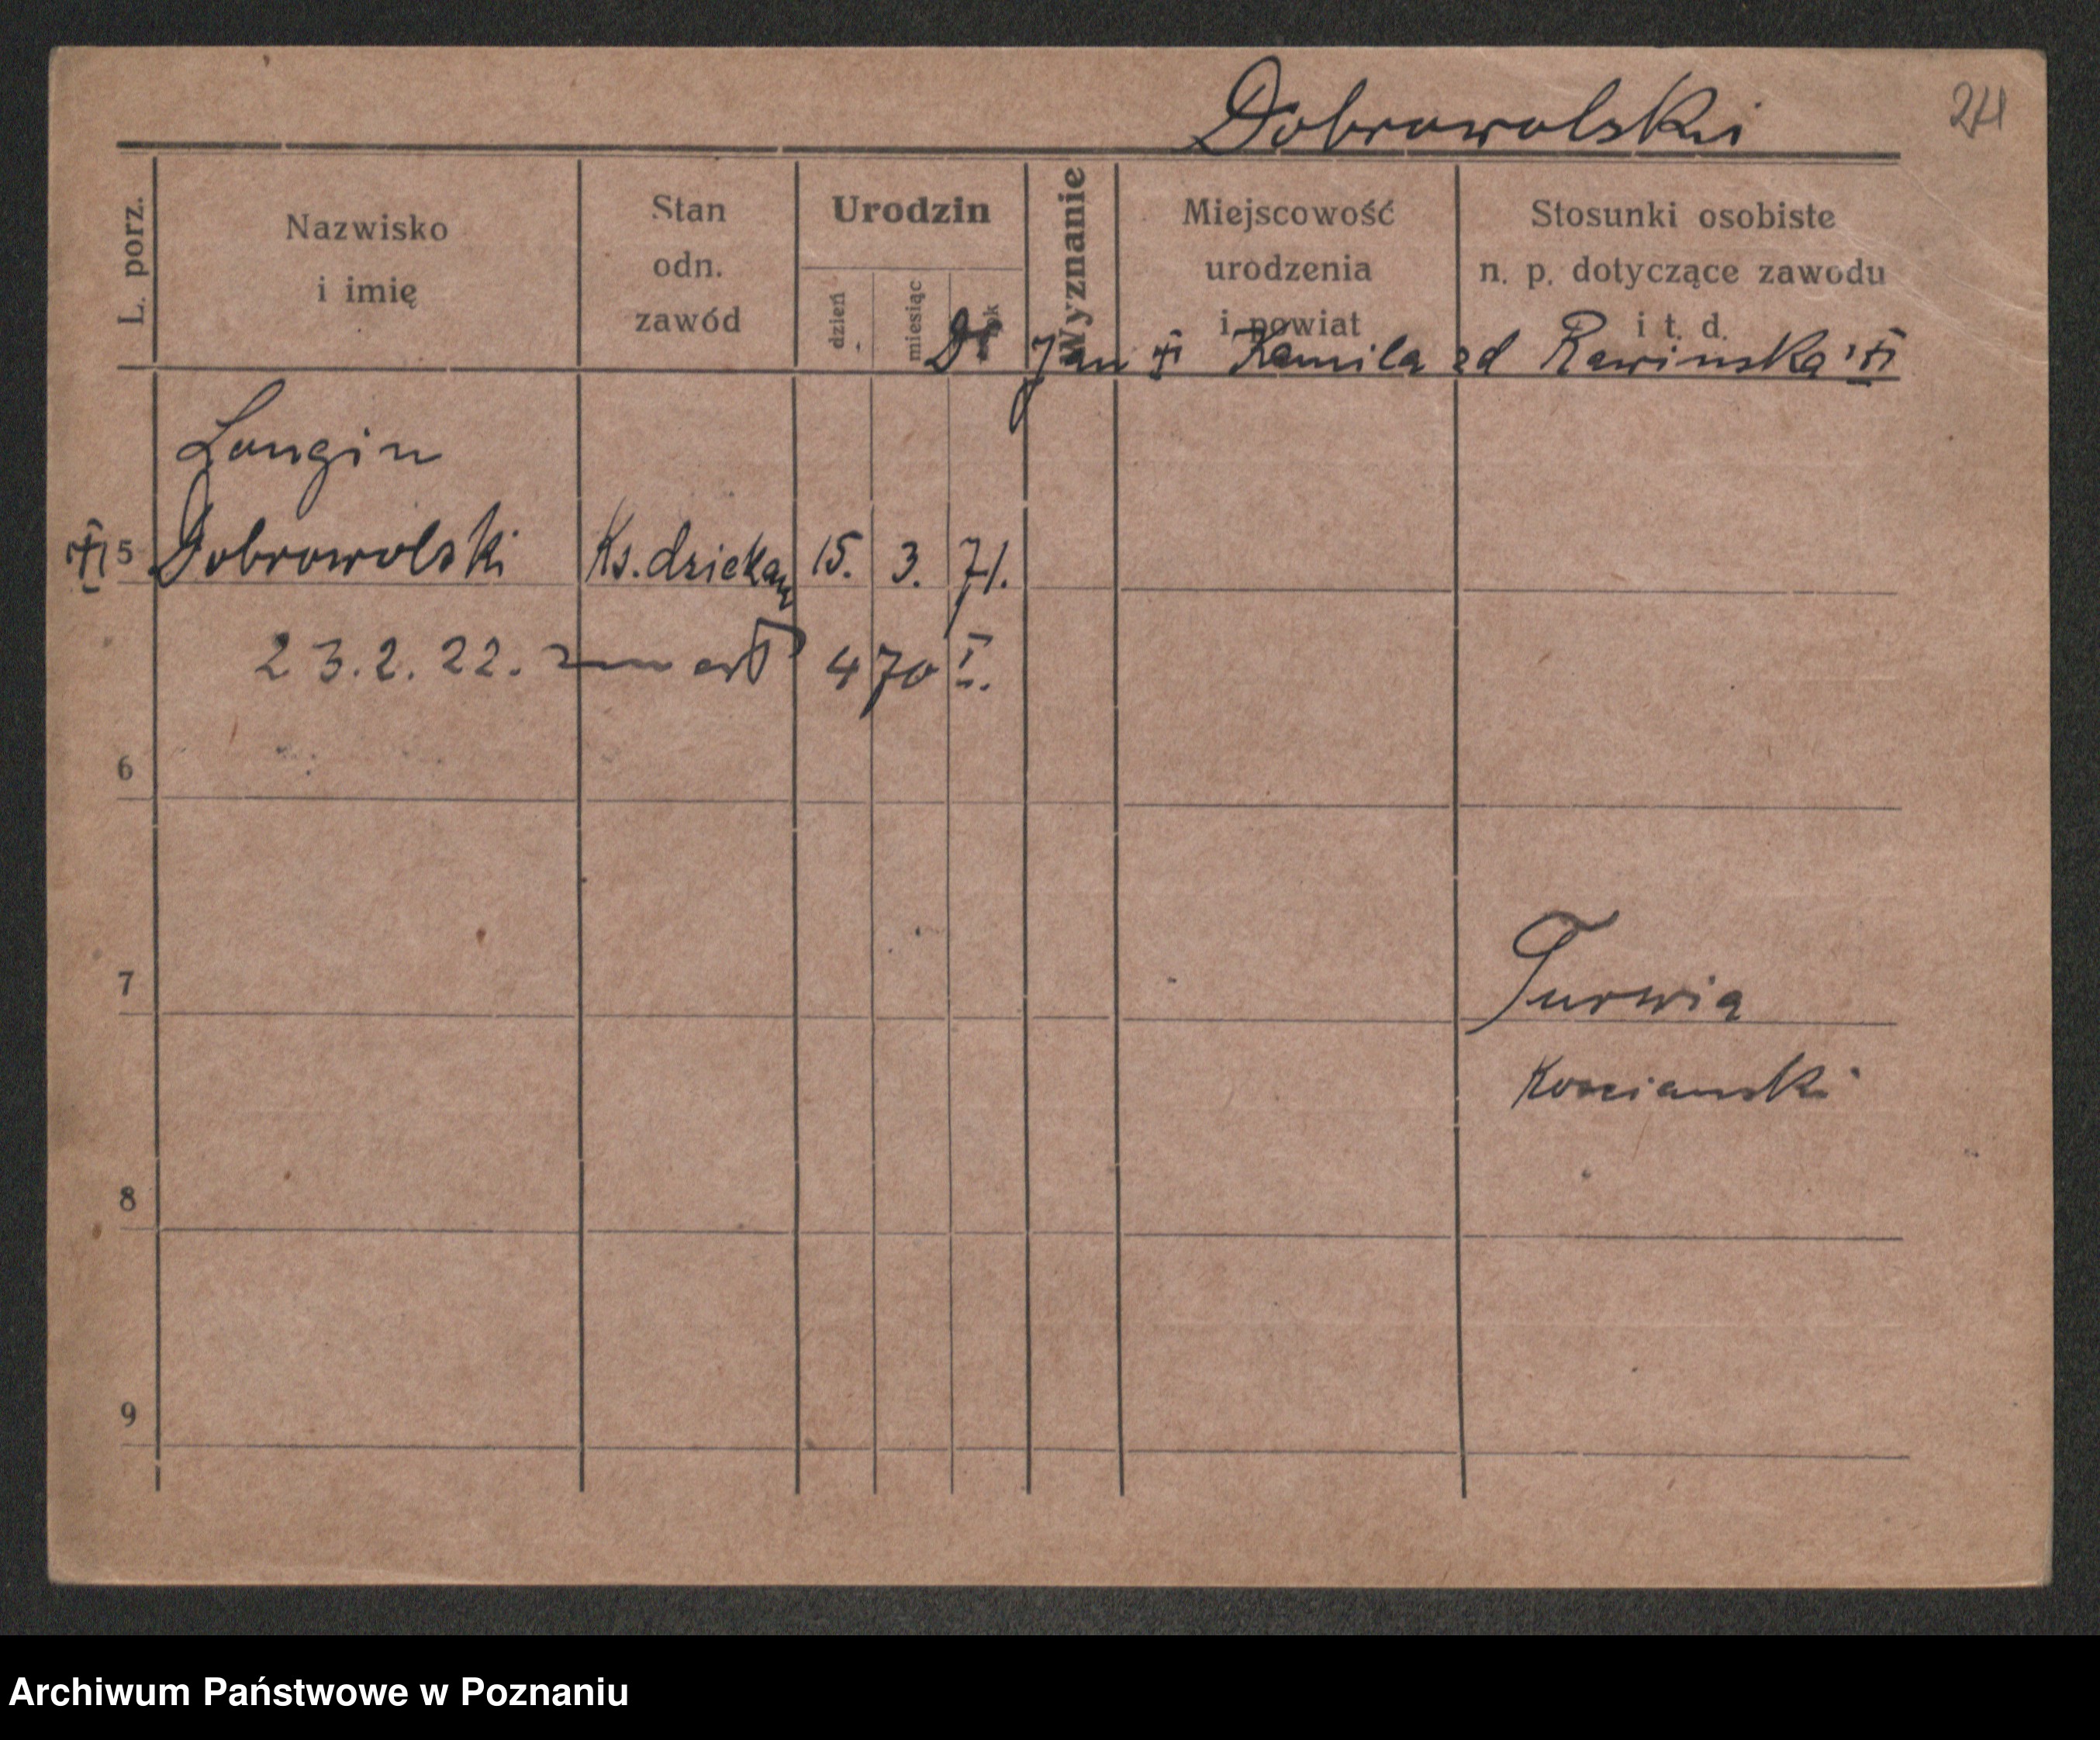 Dobrowolski
24
L. porz.
Nazwisko
i imię
Stan
odn.
zawód
Urodzin
dzień
miesiąc
rok
Wyznanie
Miejscowość
urodzenia
i powiat
Stosunki osobiste
n. p. dotyczące zawodu
i t. d.
Dr Jan Kamila zd Rawinska
Longin
5 Dobrowolski Ks. dziekan 15. 3. 71.
23.2.22. zmarł 470 I.
6
7
Turwia
Kościanski
8
9
Archiwum Państwowe w Poznaniu